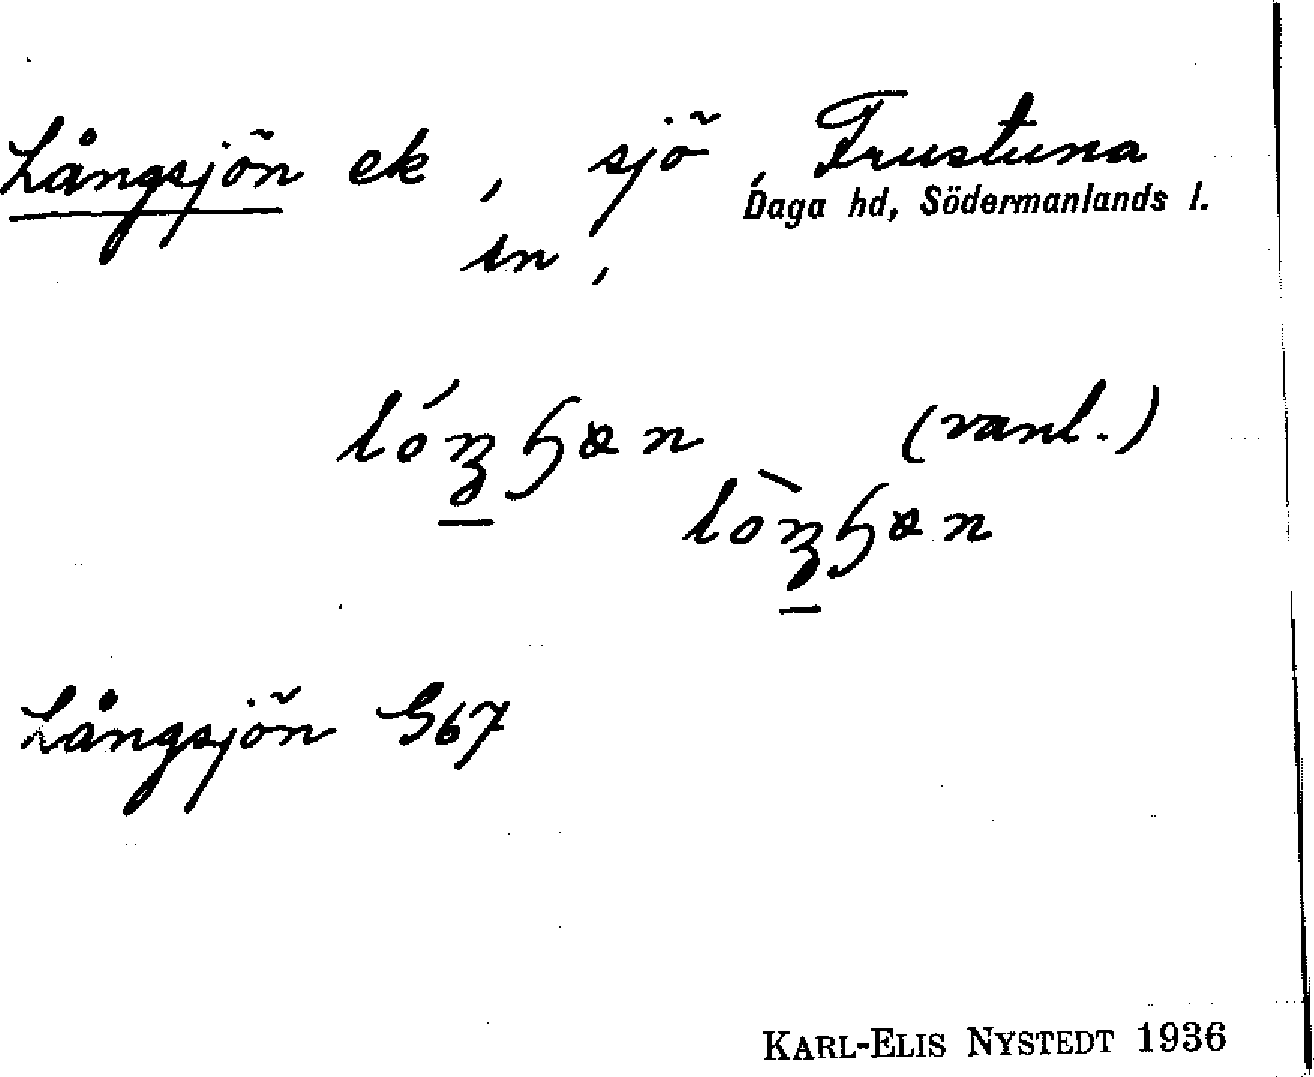 Långsjön ek, sjö, Frustuna
Daga hd, Södermanlands l.
sn,
(vanl.)
Långsjön G67
KARL-ELIS NYSTEDT 1936